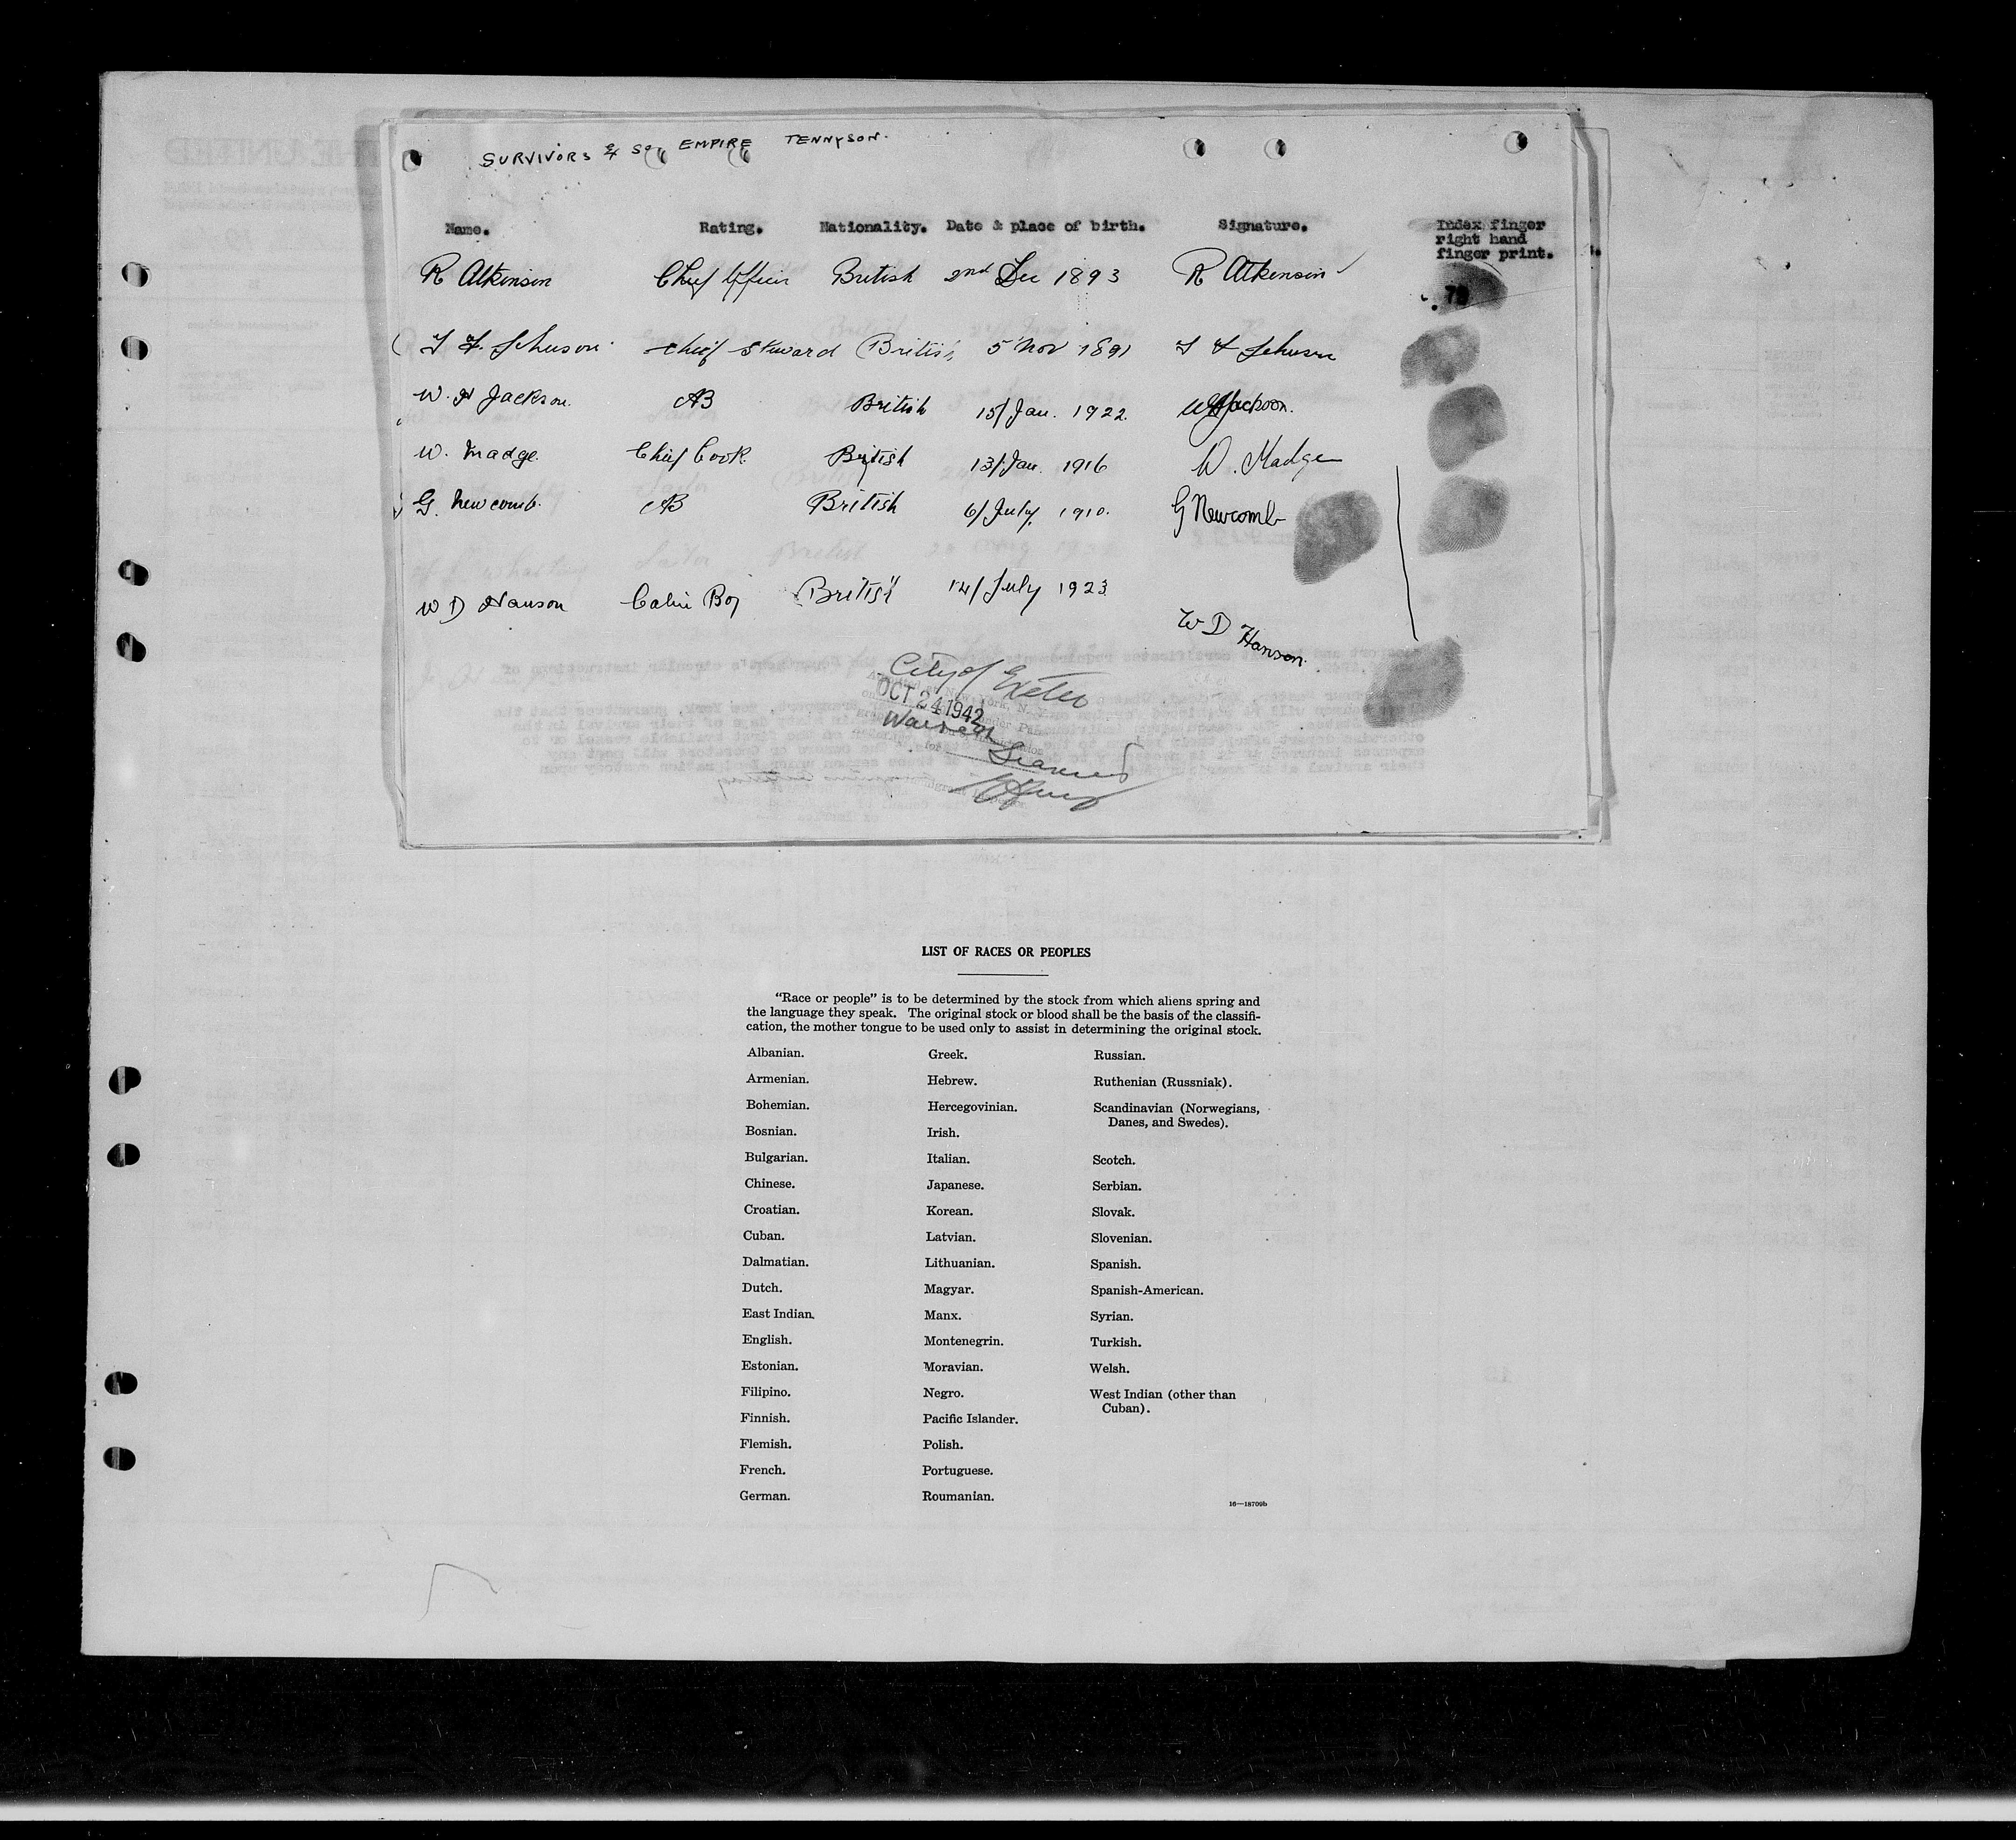 SURVIVORS of SS. EMPIRE TENNYSON.
Name. Rating. Nationality. Date & place of birth. Signature. Index finger
right hand
finger print.
R Atkinson Chief Officer British 2nd Dec 1893 R Atkinson
79
Chief Steward British 5 Nov 1891
W. H Jackson. AB British 15/Jan. 1922. WH Jackson.
W. Madge. Chief Cook. British 13/Jan. 1916 W. Madge
G. Newcomb. AB British 6/July. 1910. G Newcomb
W D Hanson Cabin Boy British 14/July 1923
W D Hanson.
City of Exeter
OCT 24 1942
LIST OF RACES OR PEOPLES
“Race or people” is to be determined by the stock from which aliens spring and
the language they speak. The original stock or blood shall be the basis of the classifi-
cation, the mother tongue to be used only to assist in determining the original stock.
Albanian. Greek. Russian.
Armenian. Hebrew. Ruthenian (Russniak).
Bohemian. Hercegovinian. Scandinavian (Norwegians,
Danes, and Swedes).
Bosnian. Irish.
Bulgarian. Italian. Scotch.
Chinese. Japanese. Serbian.
Croatian. Korean. Slovak.
Cuban. Latvian. Slovenian.
Dalmatian. Lithuanian. Spanish.
Dutch. Magyar. Spanish-American.
East Indian. Manx. Syrian.
English. Montenegrin. Turkish.
Estonian. Moravian. Welsh.
Filipino. Negro. West Indian (other than
Cuban).
Finnish. Pacific Islander.
Flemish. Polish.
French. Portuguese.
German. Roumanian.
16—18709b